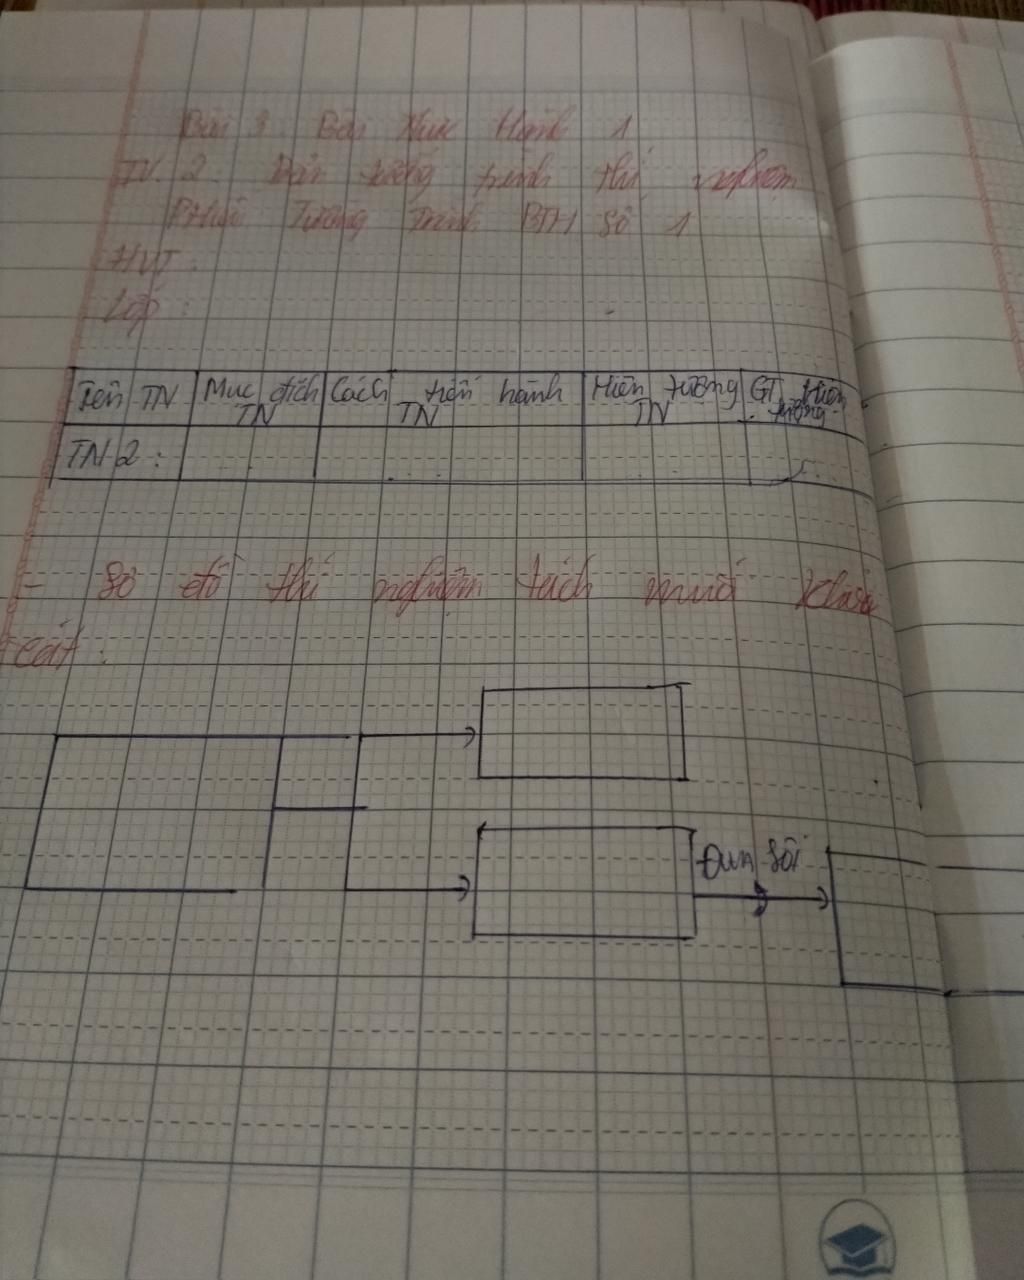 Bài 3 Bài Thực Hành 1
TN. 2. Bản tường trình thí nghiệm
Phiếu Tường Trình BTH số 1
HVT :
Lớp :
Tên TN Mục đích TN Cách tiến hành TN Hiện tượng TN GT hiện tượng
TN 2 :
- Sơ đồ thí nghiệm tách muối khỏi
cát :
Đun sôi